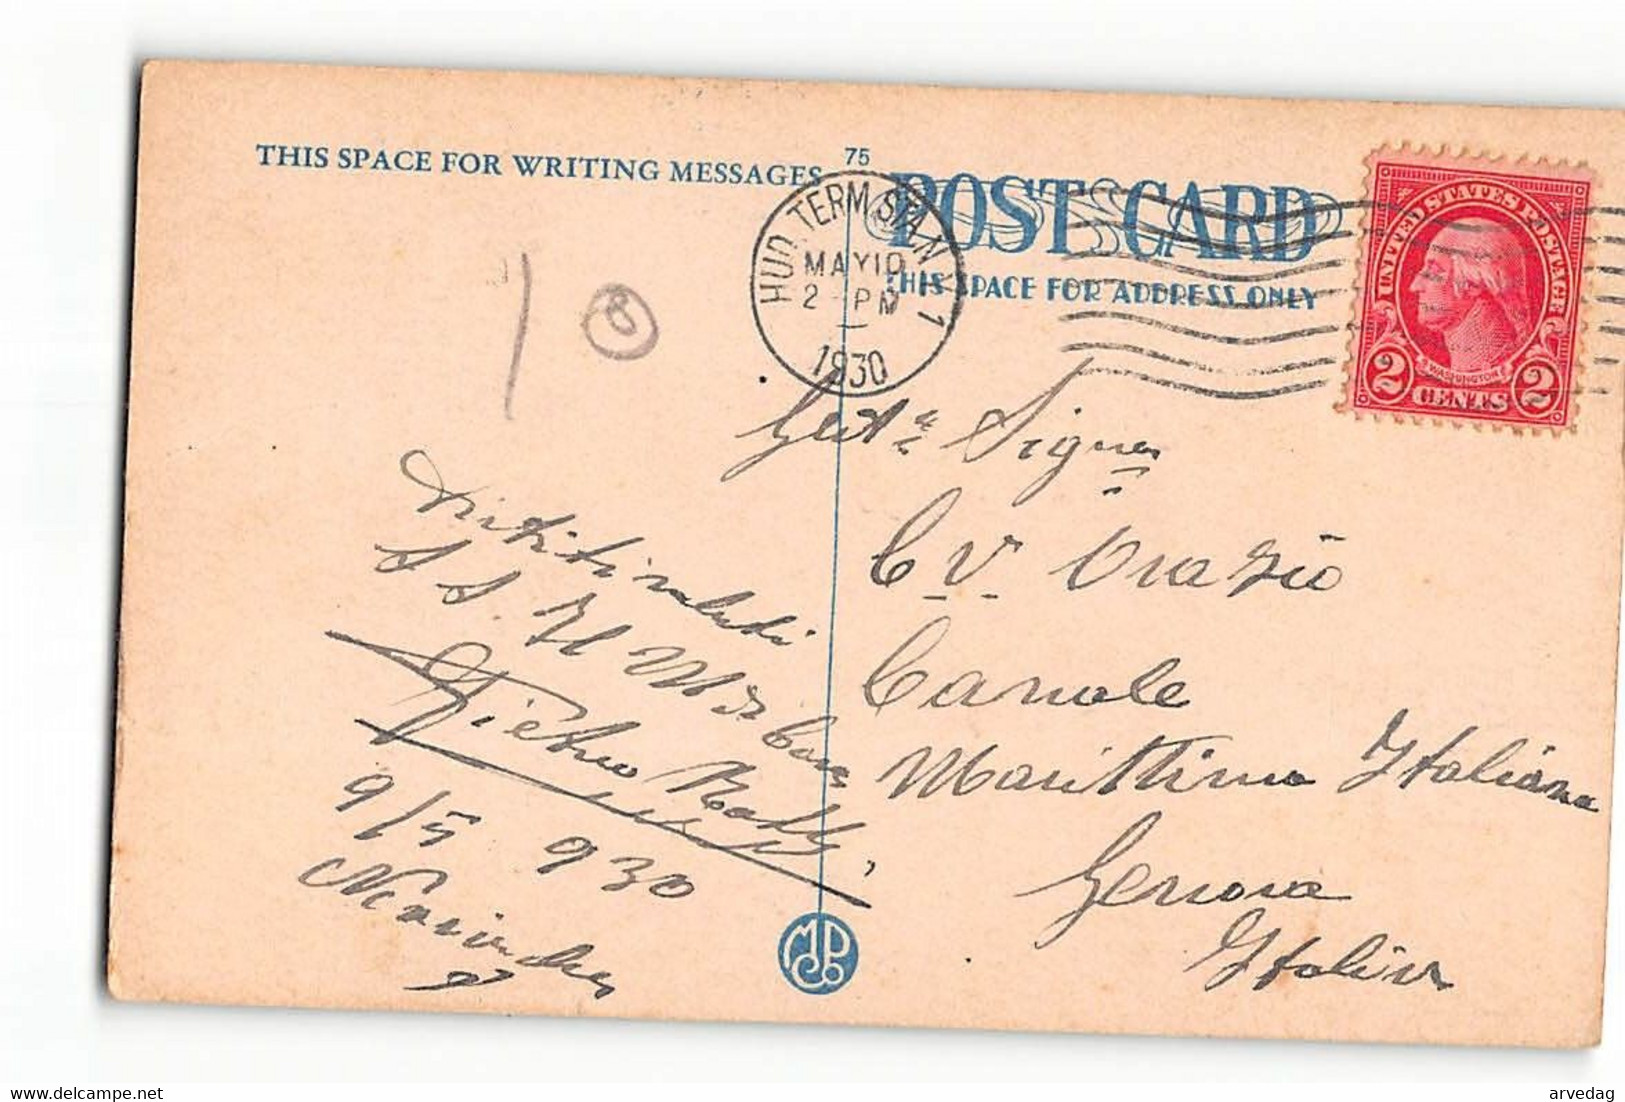 THIS SPACE FOR WRITING MESSAGES
75
POST CARD
THIS SPACE FOR ADDRESS ONLY
HUD. TERM. STA. N.Y. 1
MAY 10
2 - PM
1930
UNITED STATES POSTAGE
WASHINGTON
2 CENTS 2
1 8
Gent.a Signa
C V Orazio
Canole
Marittima Italiana
Genova
Italia
Distinti saluti
Pietro
9/5 930
MPCo
delcampe.net
arvedag